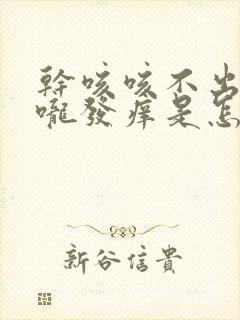 幹咳咳不出
嚨發痒是怎
新谷信貴